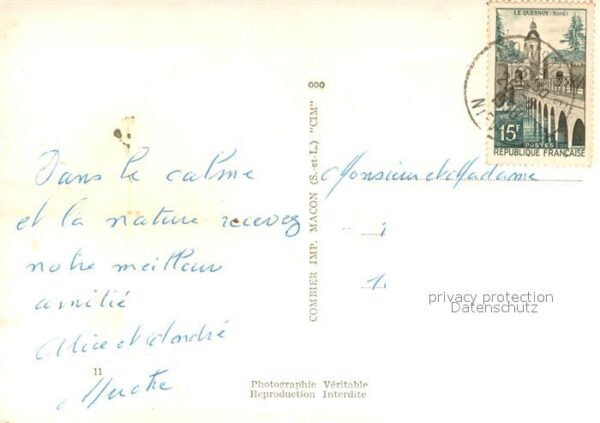 LE QUESNOY - Nord
15F
POSTES
REPUBLIQUE FRANÇAISE
000
COMBIER IMP. MACON (S.-et-L.) "CIM"
Dans le calme
et la nature recevez
notre meilleur
amitié
Alice et André
Monsieur et Madame
privacy protection
Datenschutz
11
Photographie Véritable
Reproduction Interdite